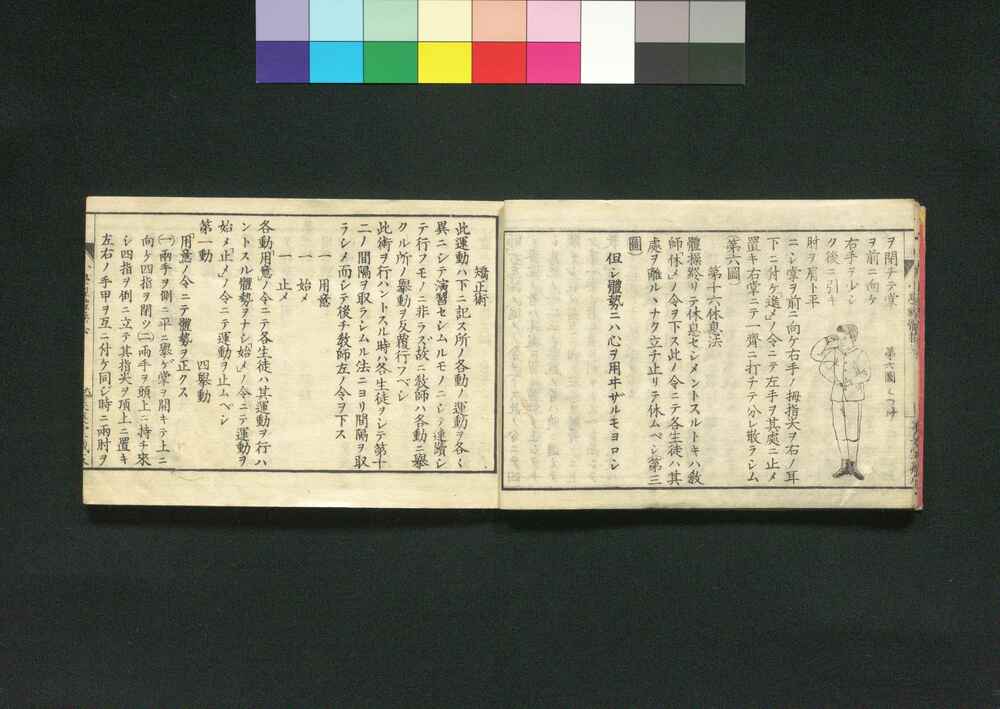 ヲ開チテ掌
ヲ前ニ向ケ
右手ヲ少シ
ク後ニ引キ
肘ヲ肩ト平
ニシ掌ヲ前ニ向ケ右手ノ拇指尖ヲ右ノ耳
下ニ付ケ進メノ令ニテ左手ヲ其處ニ止メ
置キ右掌ニテ一齊ニ打チテ分レ散ラシム
第六圖
第十六休息法
體操終リテ休息セシメントスルトキハ敎
師休メノ令ヲ下ス此ノ令ニテ各生徒ハ其
處ヲ離ルヽナク立チ止リテ休ムベシ第三
圖
但シ體勢ニハ心ヲ用ヰザルモヨロシ
第六圖
矯正術
此運動ハ下ニ記ス所ノ各動ノ運動ヲ各〻
異ニシテ演習セシムルモノニシテ連續シ
テ行フモノニ非ラズ故ニ敎師ハ各動ニ擧
クル所ノ擧動ヲ反覆行フベシ
此術ヲ行ハントスル時ハ各生徒ヲシテ第十
二ノ間隔ヲ取ラシムル法ニヨリ間隔ヲ取
ラシメ而シテ後チ敎師左ノ令ヲ下ス
一 用意
一 始メ
一 止メ
各動「用意」ノ令ニテ各生徒ハ其運動ヲ行ハ
ントスル體勢ヲナシ「始メ」ノ令ニテ運動ヲ
始メ「止メ」ノ令ニテ運動ヲ止ムベシ
第一動 四擧動
「用意」ノ令ニテ體勢ヲ正クス
㈠兩手ヲ側ニ平ニ擧ゲ掌ヲ開キテ上ニ
向ケ四指ヲ閉ツ㈡兩手ヲ頭上ニ持チ來
シ四指ヲ側ニ立テ其指尖ヲ頂上ニ置キ
左右ノ手甲ヲ互ニ付ケ同ジ時ニ兩肘ヲ